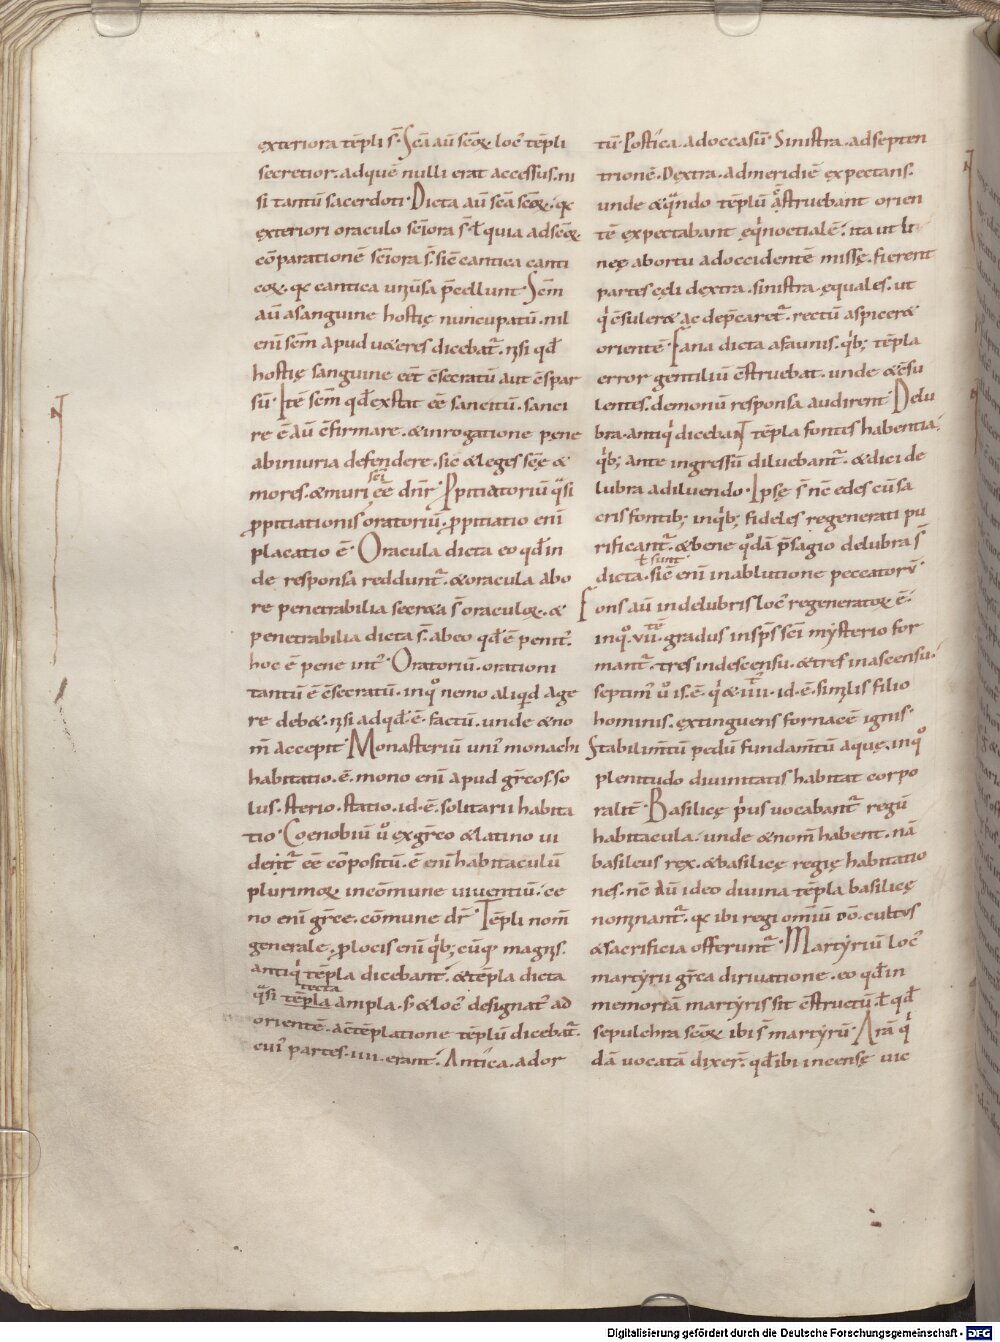 exteriora tēpli s̄. Sc̄a aū sc̄oꝝ loc᾽ tēpli
secretior. ad quē nulli erat accessus. ni
si tantū sacerdoti. Dicta aū sc̄a sc̄oꝝ. qꝛ
exteriori oraculo sc̄iora s̄. ł quia ad sc̄oꝝ
cōparationē sc̄iora s̄. sic̄ cantica canti
coꝝ. qꝛ cantica uniuersa p̄cellunt. Sc̄m
aū a sanguine hostię nuncupatū. nil
eni sc̄m apud ueteres dicebat᷑. nisi qđ
hostię sanguine eēt c̄secratū aut c̄spar
sū. Itē sc̄m qđ extat eē sancitū. sanci
re ē aū c̄firmare. & inrogatione penę
ab iniuria defendere. sic & leges sc̄ę &
mores. & muri sc̄i eē dn̄r. Ppitiatoriū qͣsi
ꝓpitiationis oratoriū. ꝓpitiatio eni
placatio ē. Oracula dicta eo qđ in
de responsa reddunt᷑. & oracula ab o
re penetrabilia secreta s̄ oraculoꝝ. &
penetrabilia dicta s̄. ab eo qđ ē penit᾽.
hoc ē pene int᾽. Oratoriū. orationi
tantū ē c̄secratū. in qͦ nemo aliqid age
re debet. nisi ad qđ ē factū. unde & no
m̄ accepit. Monasteriū uni᾽ monachi
habitatio. ē. mono eni apud grēcos. so
lus. sterio. statio. id. ē. solitarii habita
tio. Coenobiū ů ex grēco & latino ui
det᷑ eē cōpositū. ē eni habitaculū
plurimoꝝ in cōmune uiuentiū. ce
no eni grēce. cōmune dr̄. Tēpli nom̄
generale. ꝓ locis eni qͥb; cūqꝫ magnis.
antiqͥ tēpla dicebant᷑. & tēpla dicta
qͣsi tecta ampla. s; & loc᾽ designat᾽ ad
orientē. a c̄tēplatione tēplū dicebat᷑.
cui᾽ partes. iiii. erant. Antica. ad or
tū. Postica. ad occasū. Sinistra. ad septen
trionē. Dextra. ad meridiē expectans.
unde & qͣndo tēplū c̄struebant orien
tē expectabant ęqͥnoctialē. ita ut li
neę ab ortu ad occidentē missę. fierent
partes cęli dextra. sinistra. ęquales. ut
qͥ c̄suleret ac dep̄caret᷑. rectū aspiceret
orientē. Fana dicta a faunis. qͥb; tēpla
error gentiliū c̄struebat. unde & c̄su
lentes. demonū responsa audirent. Delu
bra. antiqͥ dicebant tēpla fontes habentia.
qͥb; ante ingressū diluebant᷑. & dici de
lubra a diluendo. Ipsę s̄ nc̄ ędes cū sa
cris fontib; in qͥb; fideles regenerati pu
rificant᷑. & bene qͦdā p̄sagio delubra s̄
dicta. ł sunt sic̄ eni in ablutione peccatorū.
Fons aū in delubris loc᾽ regeneratoꝝ ē.
in qͦ. vii. tē gradus in sp̄s sc̄i mysterio for
mant᷑. tres in descensu. & tres in ascensu.
septim᾽ ů is. ē. qͥ & iiii. id. ē. similis filio
hominis. extinguens fornacē ignis.
Stabilim̄tū pedū fundam̄tū aquę. in qͦ
plenitudo diuinitatis habitat corpo
ralit᷑. Basilicę pͥus uocabant᷑ regū
habitacula. unde & nom̄ habent. nā
basileus rex. & basilicę regię habitatio
nes. nc̄ aū ideo diuina tēpla basilicę
nominant᷑. qꝛ ibi regi omniū dō. cultus
& sacrificia offerunt᷑. Martyriū loc᾽
martyrii grēca diriuatione. eo qđ in
memoriā martyris sit c̄structū. ł qđ
sepulchra sc̄oꝝ ibi s̄ martyrū. Arā qͥ
dā uocatā dixer̄. qđ ibi incensę uic